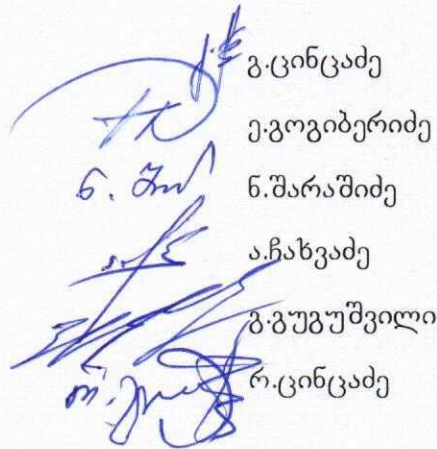 გ.ცინცაძე
ე.გოგიბერიძე
ნ.შარაშიძე
ა.ჩახვაძე
გ.გუგუშვილი
რ.ცინცაძე